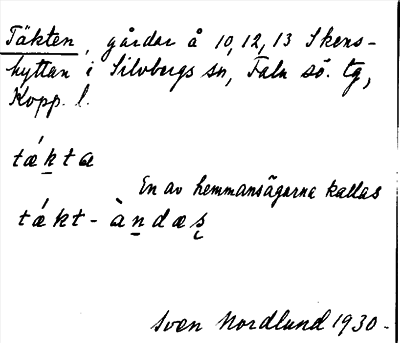 Täkten, gårdar å 10, 12, 13 Skens-
hyttan i Silvbergs sn, Falu sö. tg,
Kopp. l.
tǽkta
En av hemmansägarna kallas
tǽkt-àndæs
Sven Nordlund 1930.